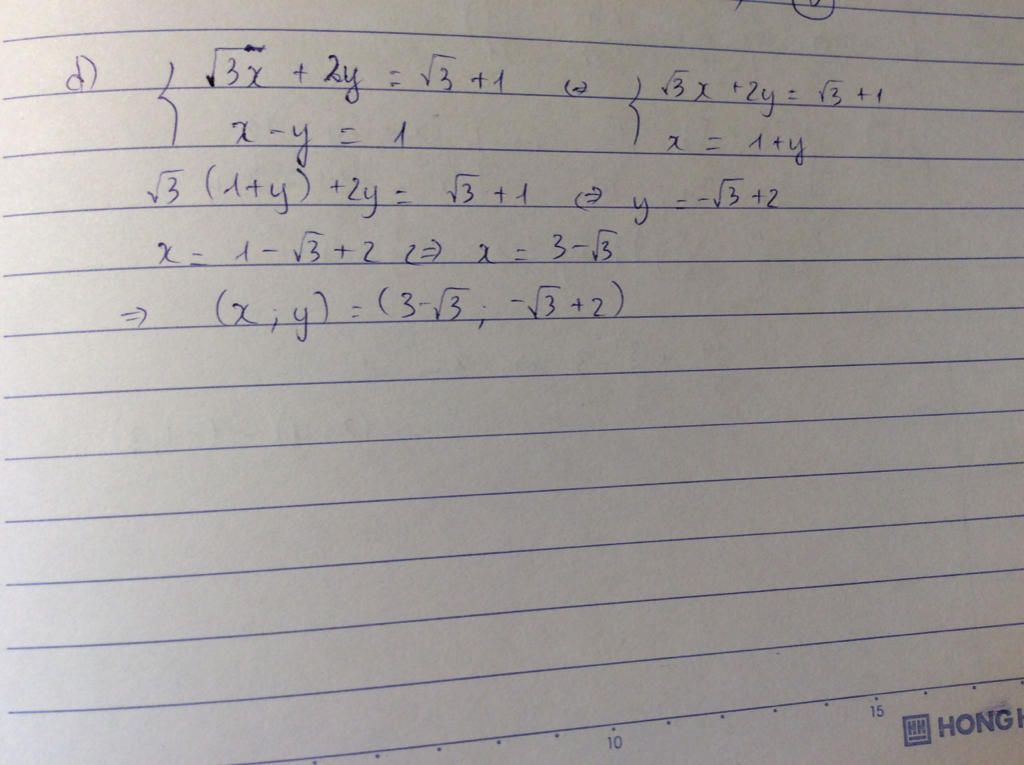 d) { √3x + 2y = √3 + 1 ⇔ { √3 x + 2y = √3 + 1
x - y = 1 x = 1 + y
√3 (1+y) + 2y = √3 + 1 ⇔ y = -√3 + 2
x = 1 - √3 + 2 ⇔ x = 3 - √3
⇒ (x ; y) = (3-√3 ; -√3 + 2)
10 15 HONG H